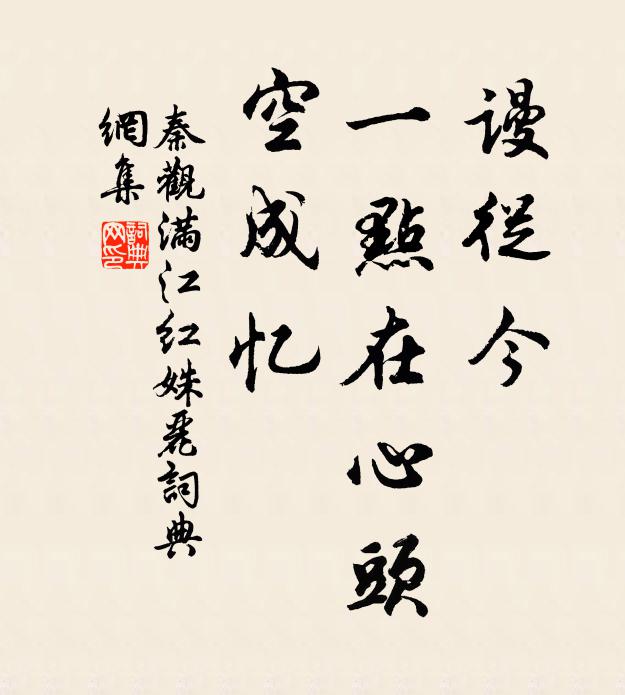 謾從今
一點在心頭
空成忆
秦觀滿江红姝麗詞典
網集
詞典网印